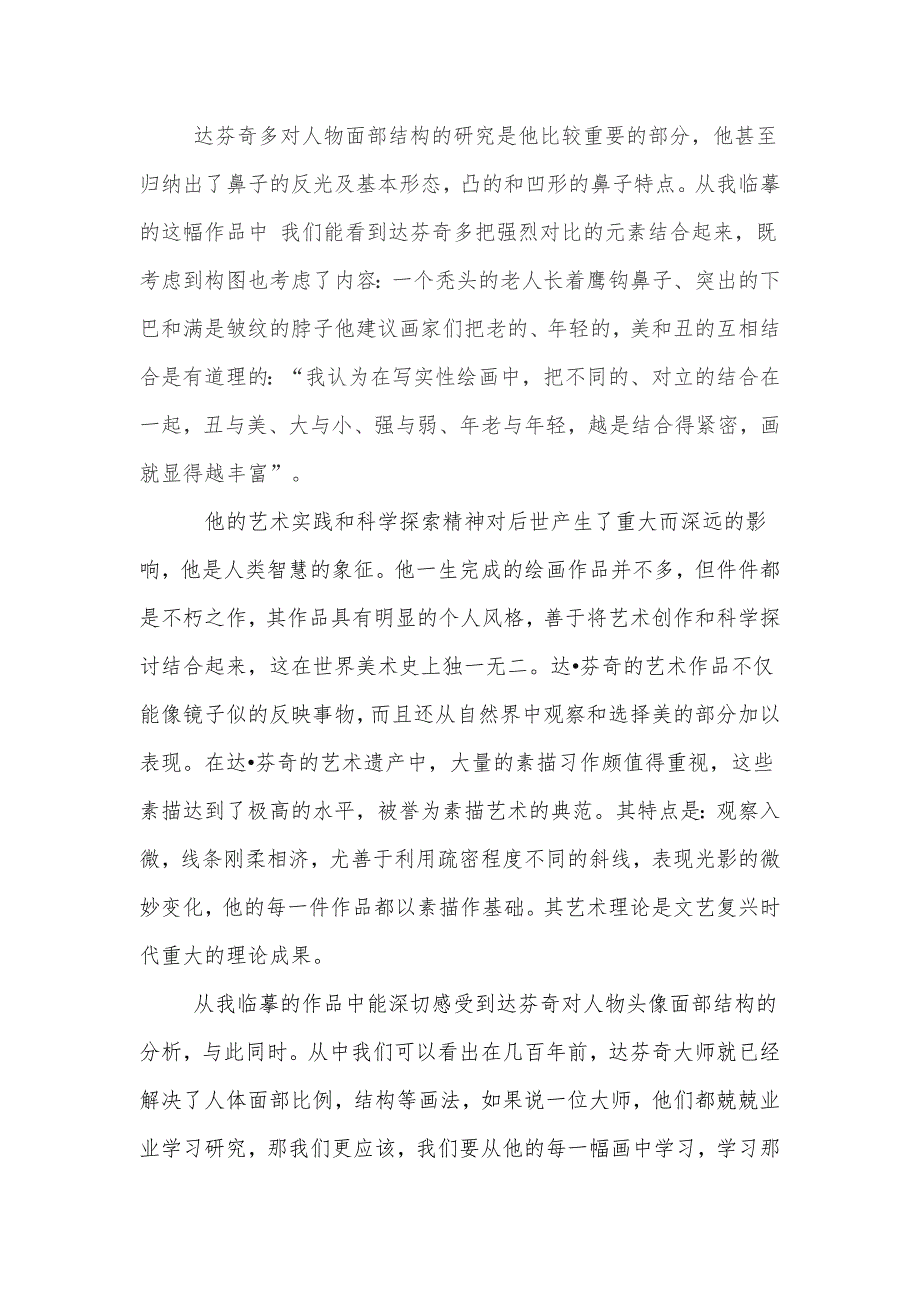 达芬奇多对人物面部结构的研究是他比较重要的部分，他甚至
归纳出了鼻子的反光及基本形态，凸的和凹形的鼻子特点。从我临摹
的这幅作品中 我们能看到达芬奇多把强烈对比的元素结合起来，既
考虑到构图也考虑了内容：一个秃头的老人长着鹰钩鼻子、突出的下
巴和满是皱纹的脖子他建议画家们把老的、年轻的，美和丑的互相结
合是有道理的：“我认为在写实性绘画中，把不同的、对立的结合在
一起，丑与美、大与小、强与弱、年老与年轻，越是结合得紧密，画
就显得越丰富”。
他的艺术实践和科学探索精神对后世产生了重大而深远的影
响，他是人类智慧的象征。他一生完成的绘画作品并不多，但件件都
是不朽之作，其作品具有明显的个人风格，善于将艺术创作和科学探
讨结合起来，这在世界美术史上独一无二。达•芬奇的艺术作品不仅
能像镜子似的反映事物，而且还从自然界中观察和选择美的部分加以
表现。在达•芬奇的艺术遗产中，大量的素描习作颇值得重视，这些
素描达到了极高的水平，被誉为素描艺术的典范。其特点是：观察入
微，线条刚柔相济，尤善于利用疏密程度不同的斜线，表现光影的微
妙变化，他的每一件作品都以素描作基础。其艺术理论是文艺复兴时
代重大的理论成果。
从我临摹的作品中能深切感受到达芬奇对人物头像面部结构的
分析，与此同时。从中我们可以看出在几百年前，达芬奇大师就已经
解决了人体面部比例，结构等画法，如果说一位大师，他们都兢兢业
业学习研究，那我们更应该，我们要从他的每一幅画中学习，学习那